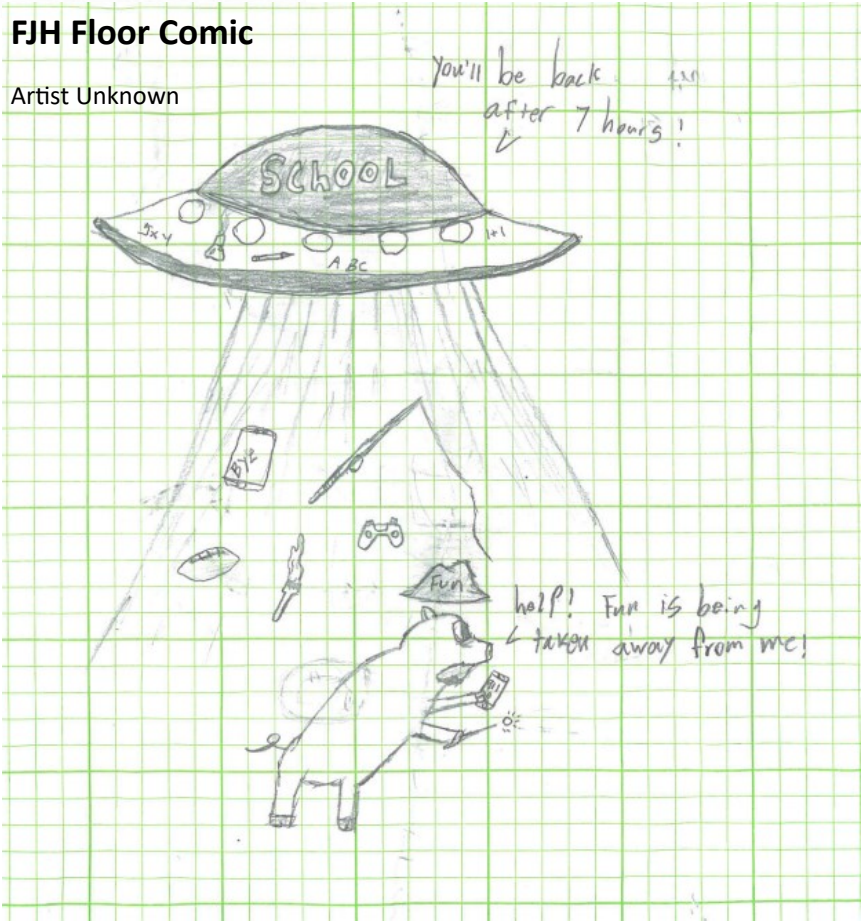 FJH Floor Comic
Artist Unknown
You'll be back
after 7 hours!
SCHOOL
1+1
ABC
Bye
Fun
help! Fun is being
taken away from me!